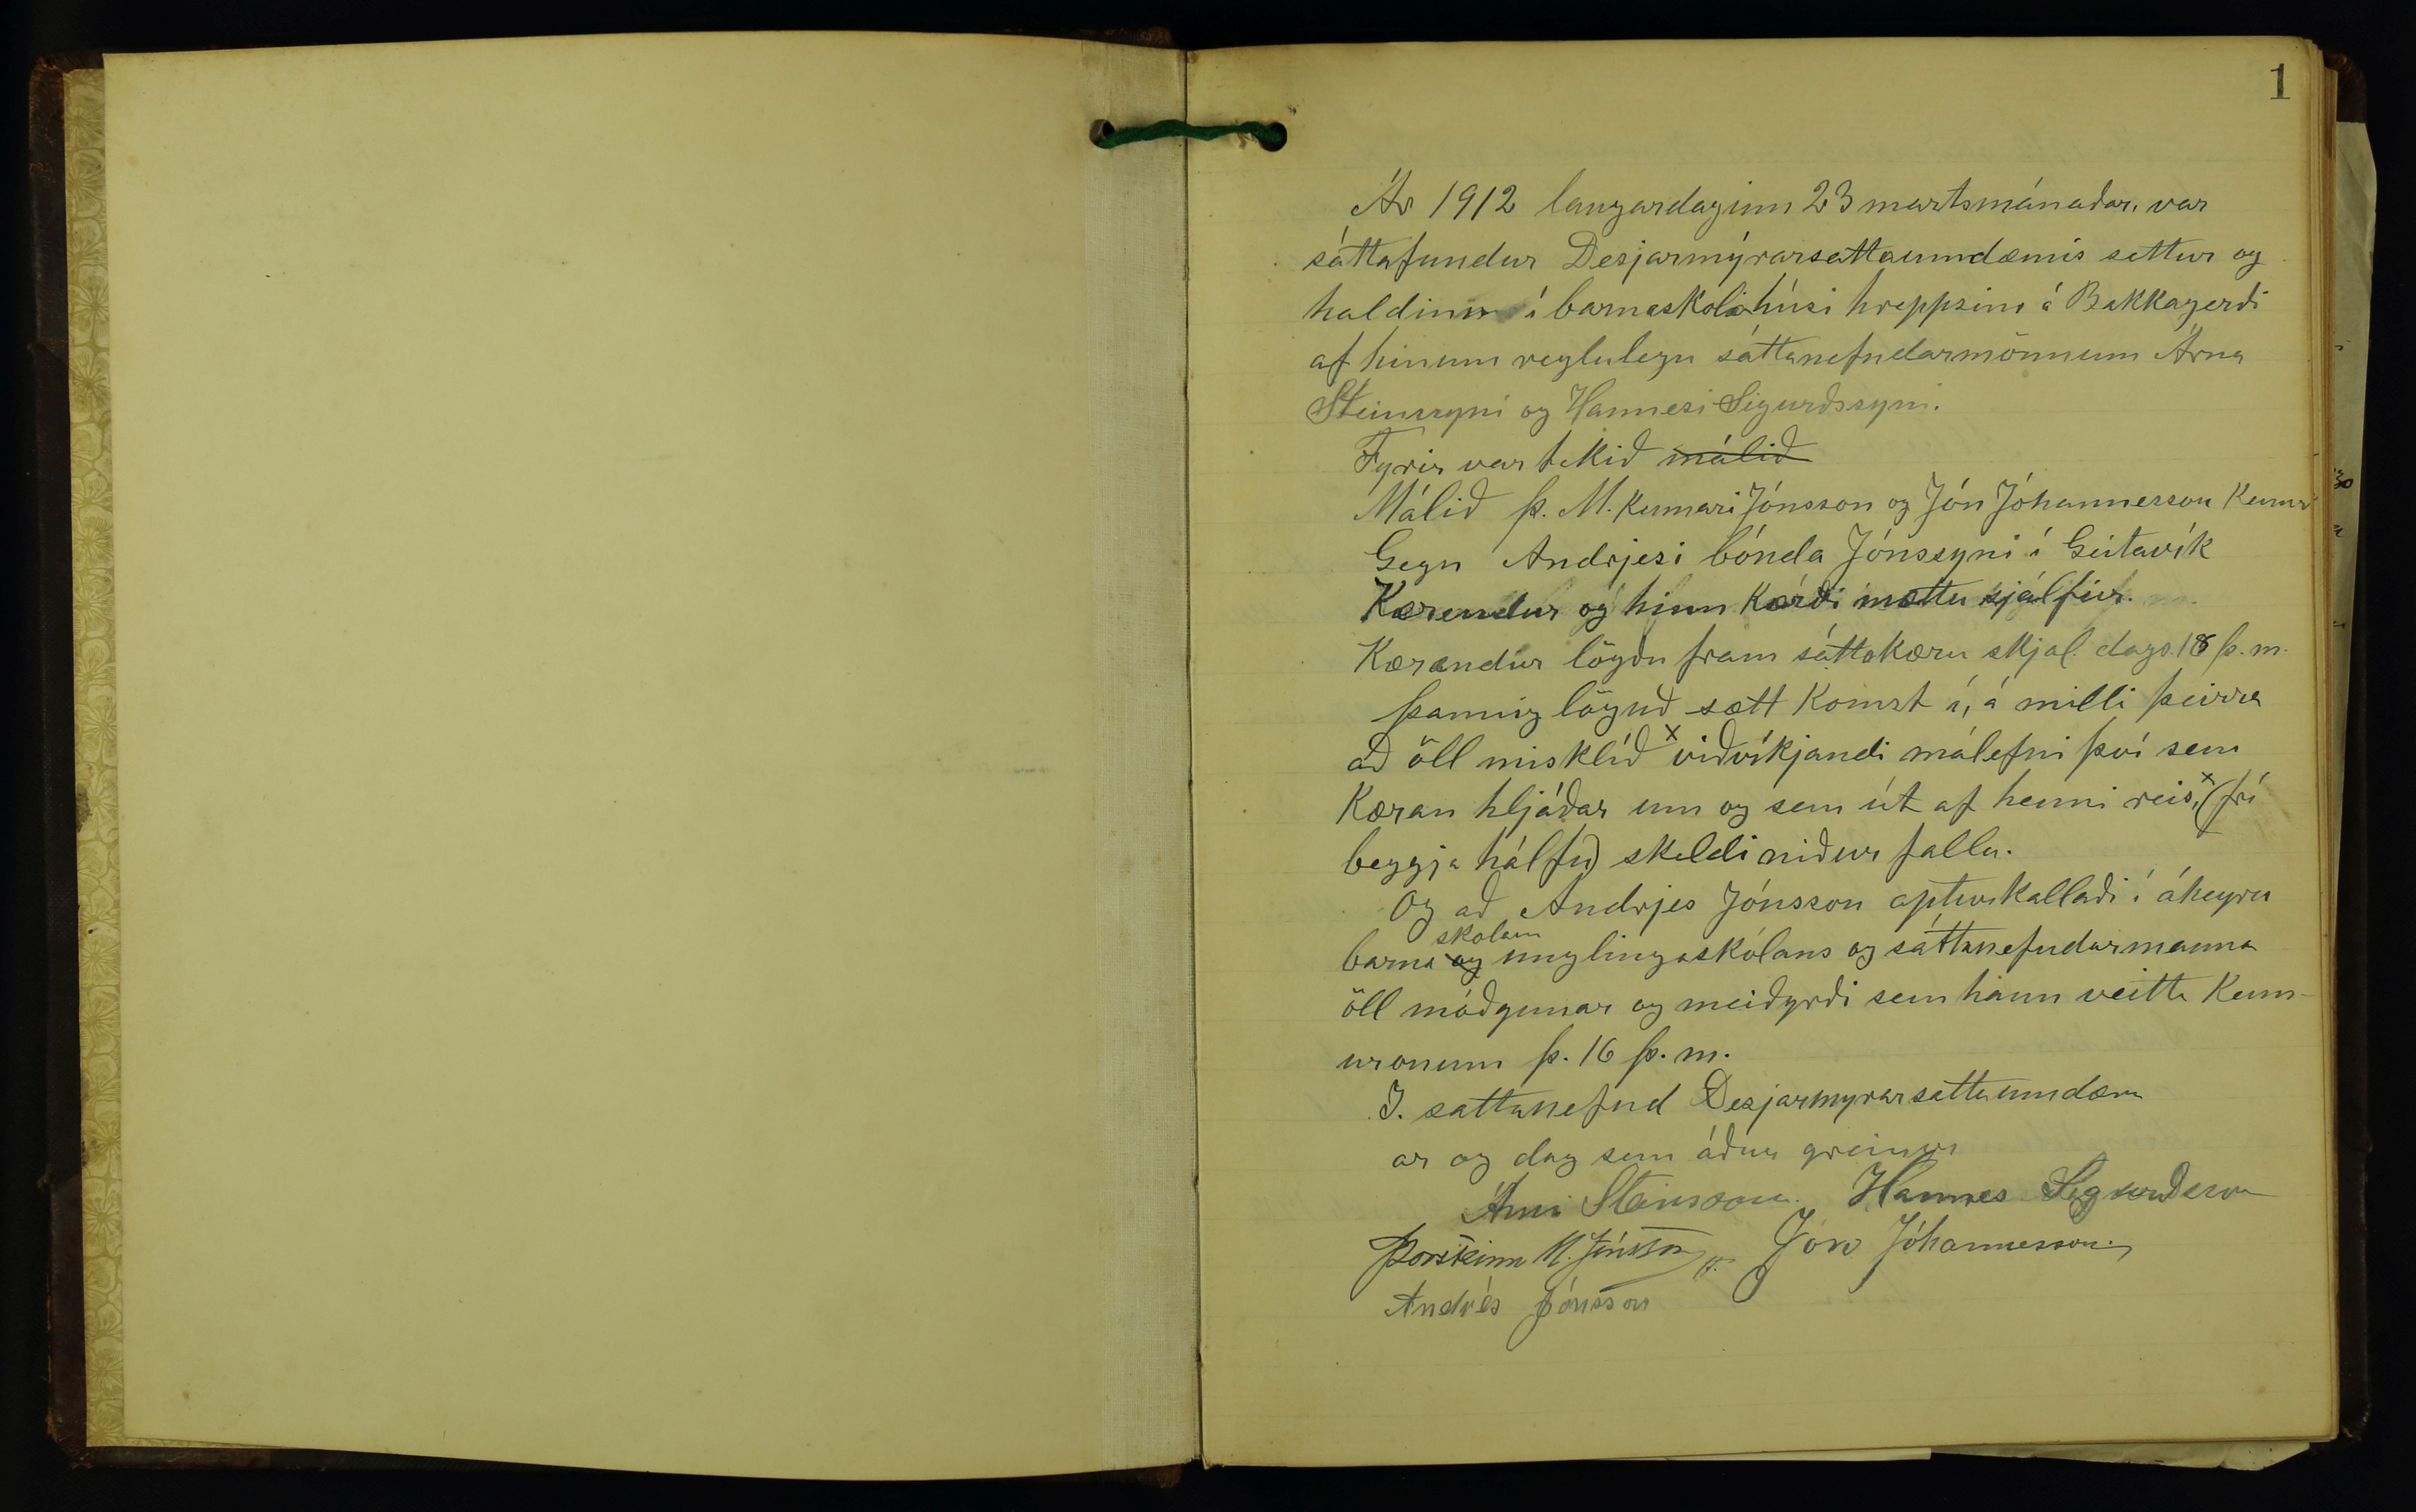 1
Ár 1912 laugardaginn 23 martsmánaðar, var
sáttafundur Desjarmýrarsattaumdæmis settur og
haldinn í barnaskólahúsi hreppsins á Bakkagerði
af hinum reglulegu sáttanefndarmönnum Árna
Steinssyni og Hannesi Sigurðssyni.
Fyrir var tekið málið
Málið Þ. M. kennari Jónsson og Jón Jóhannesson Kennari
Gegn Andrjesi bónda Jónssyni í Geitavík
Kærendur og hinn Kærði mættu sjálfir.
Kærendur lögðu fram sáttakæru skjal. dags. 18 þ. m.
Þannig löguð sætt Komst á, á milli þeirra
að öll misklíð x viðvíkjandi málefni því sem
Kæran hljáðar um og sem út af henni reis, x (frá
beggja hálfu) skeldi niður falla.
Og að Andrjes Jónsson apturkallaði í áheyrn
skolans
barna og unglingaskólans og sáttanefndarmanna
öll móðgunar og meiðyrði sem hann veitti Kenn-
uronum þ. 16 þ. m.
Í. sattanefnd Desjarmyrarsattaumdæm
ar og dag sem áður greinir
Árni Steinsson. Hannes Sigurðsson
Þorsteinn M. Jónsson Jón Jóhannesson
Andrés Jónsson